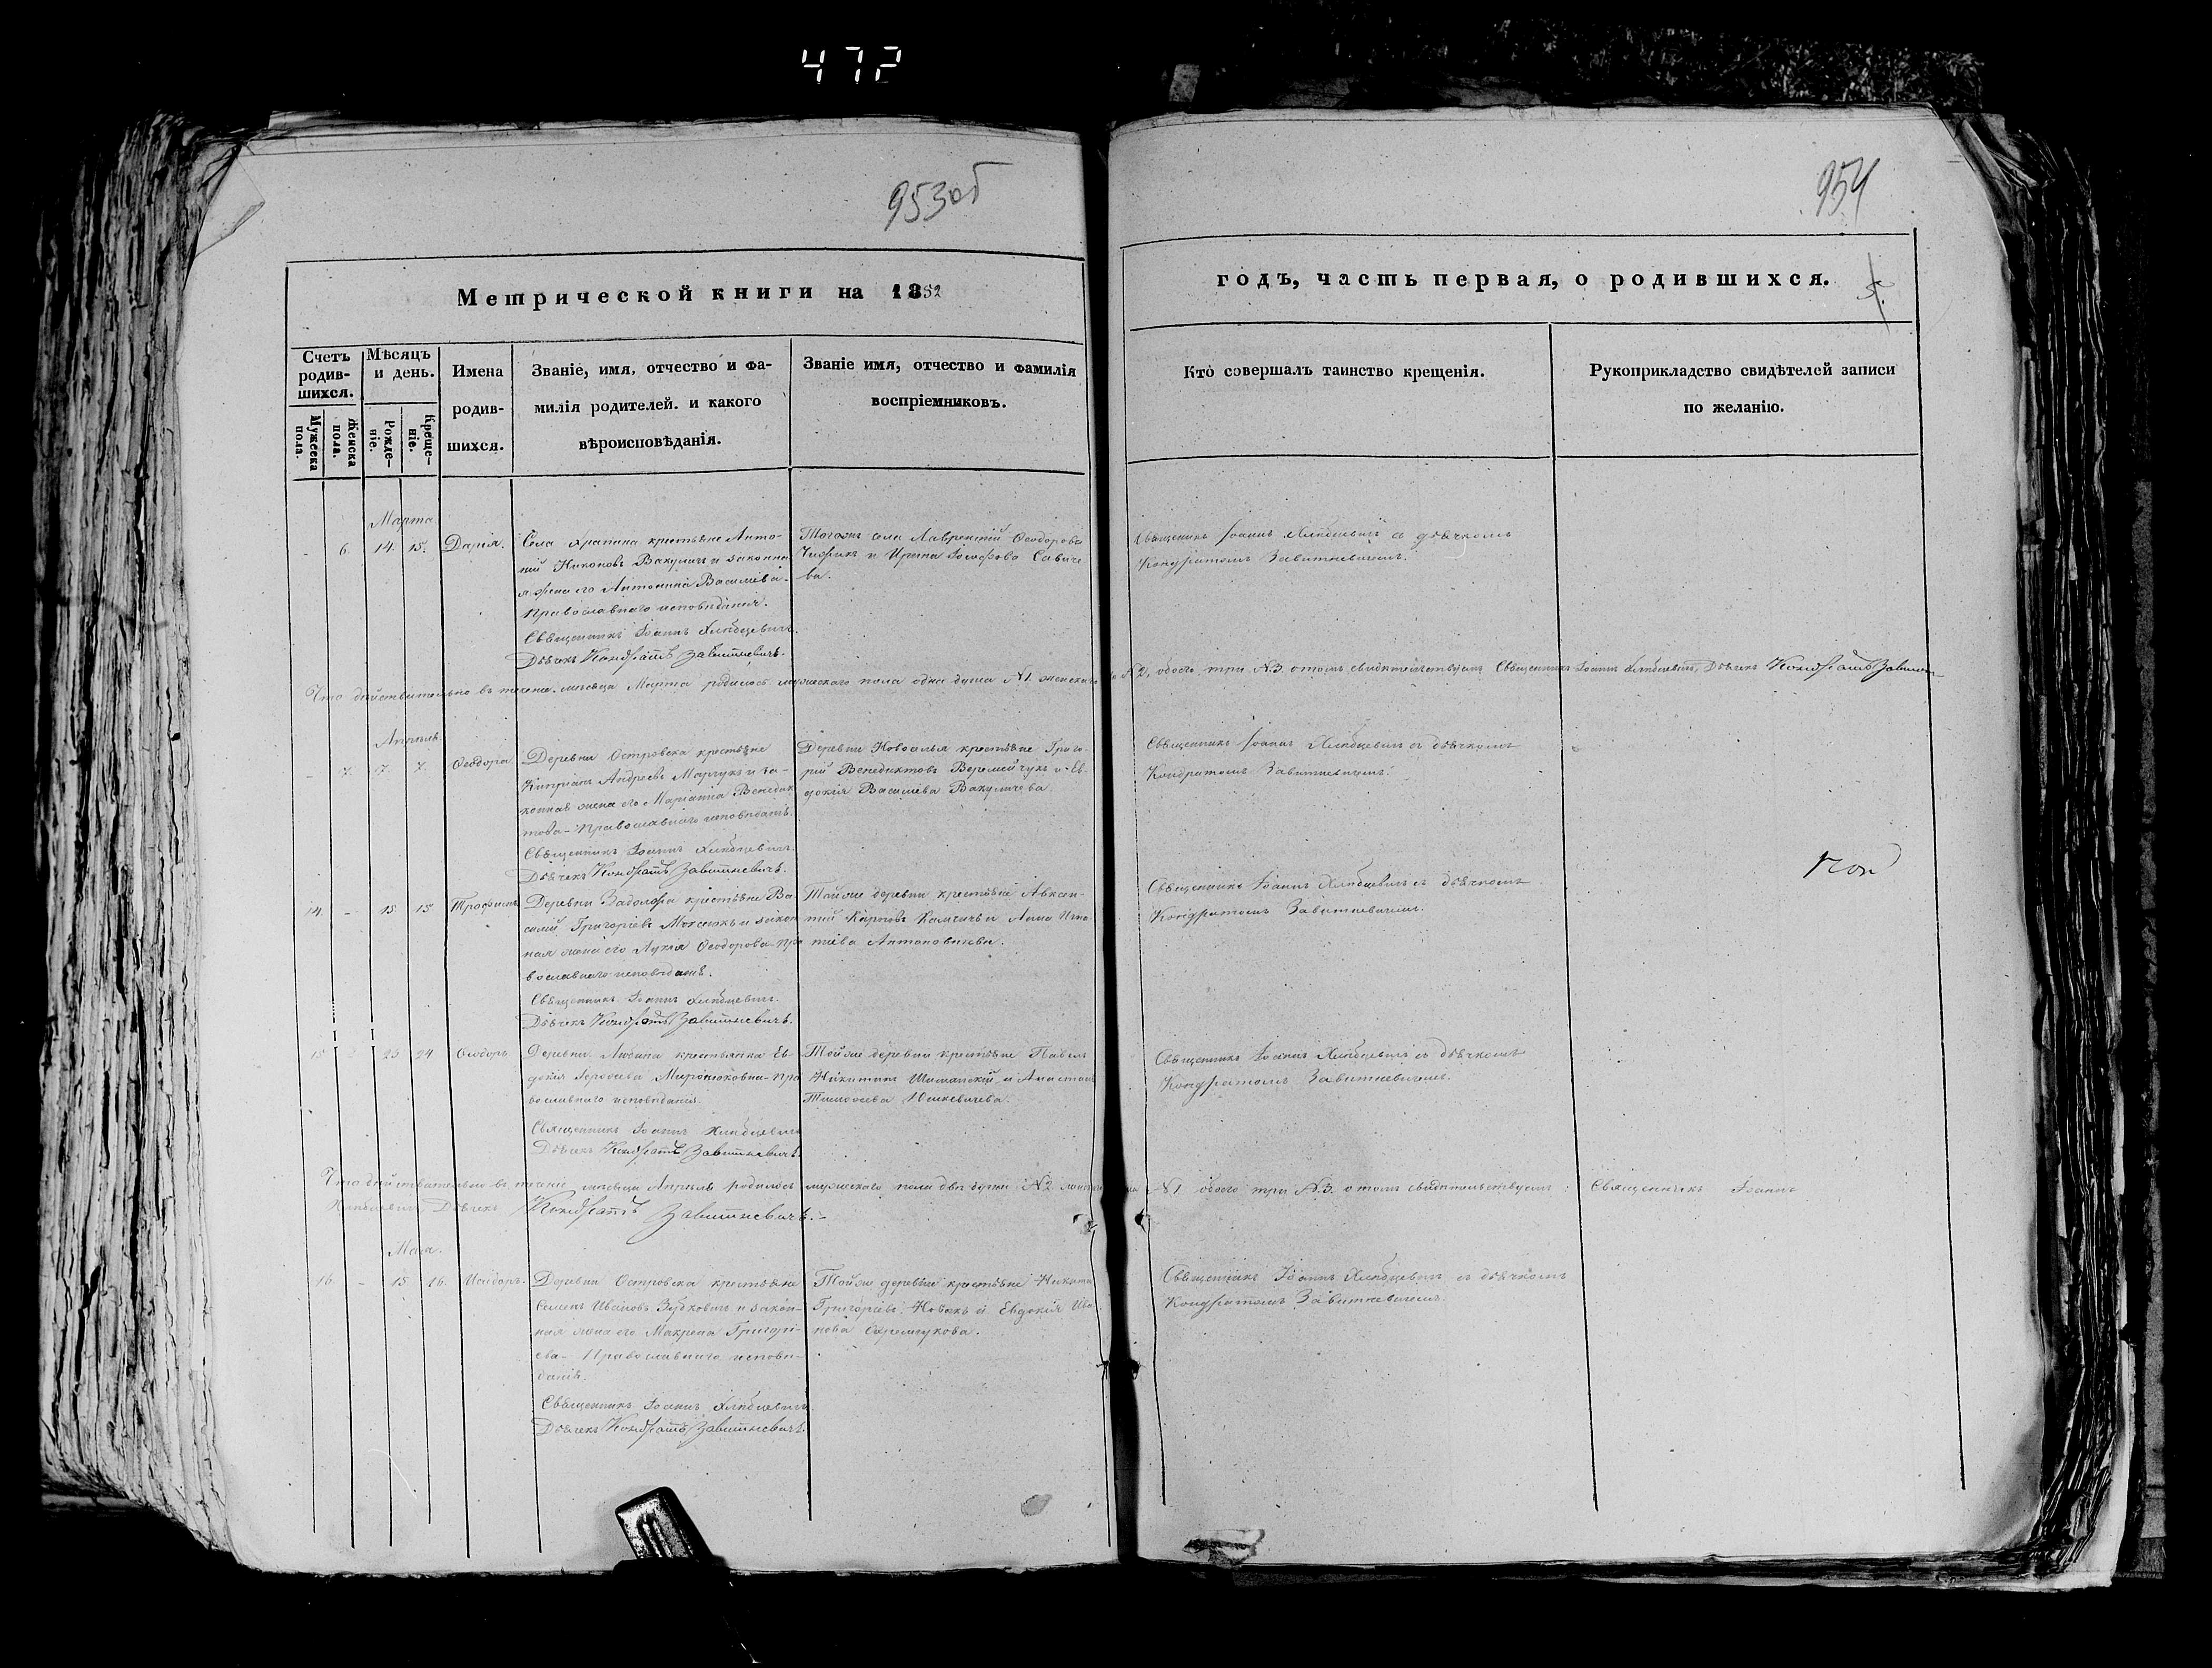 472
953об
954
Метрической книги на 1852
годъ, часть первая, о родившихся.
5.
Счетъ родив-шихся.
Мужеска пола.
Женска пола.
Мѣсяцъ и день.
Рожде-ніе.
Креще-ніе.
Имена
родив-
шихся.
Званіе, имя, отчество и фа-
милія родителей. и какого
вѣроисповѣданія.
Званіе имя, отчество и фамилія
воспріемниковъ.
Кто совершалъ таинство крещенія.
Рукоприкладство свидѣтелей записи
по желанію.
Марта
- 6. 14. 15. Дарія.
Села Храпина крестьяне Анто-
ній Никоновъ Вакуличъ и законна
я жена его Антонина Василіева-
Православнаго исповѣданія.
Священникъ Іоаннъ Хлѣбцевичъ.
Дьячекъ Кондратъ Завитневичъ.
Тогожъ села Лаврентій Ѳеодоровъ
и Ирина Іосифова Савиче
ва.
Священникъ Іоаннъ Хлѣбцевичъ съ дьячкомъ
Кондратомъ Завитневичемъ.
Что дѣйствительно въ теченіе мѣсяца Марта родилось мужескаго пола одна душа №1. женскаго №2, обоего три №3. о томъ свидѣтельствуемъ Священникъ Іоаннъ Хлѣбцевичъ, Дьячекъ Кондратъ
Апрѣля.
- 7. 7. 7. Ѳеодора
Деревни Островска крестьяне
Кипріанъ Андреевъ Марчукъ и за-
конная жена его Маріанна Венедик
това- Православнаго исповѣданія.
Священникъ Іоаннъ Хлѣбцевичъ.
Дьячекъ Кондратъ Завитневичъ.
Деревни Новоселья крестьяне Григо-
рій Венедиктовъ Веремейчукъ и Ев-
докія Василіева Вакуличева
Священникъ Іоаннъ Хлѣбцевичъ съ дьячкомъ
Кондратомъ Завитневичемъ.
14. - 15 15 Трофимъ
Деревни крестьяне Ва-
силій Григоріевъ и закон
ная жена его Лукія Ѳеодорова- пра
вославнаго исповѣданія.
Священникъ Іоаннъ Хлѣбцевичъ.
Дьячекъ Кондратъ Завитневичъ.
Тойже деревни крестьяне Авксен-
тій и Анна Игна
тіева Антоновичева.
Священникъ Іоаннъ Хлѣбцевичъ съ дьячкомъ
Кондратомъ Завитневичемъ.
15 - 23 24 Ѳеодоръ
Деревни Любаша крестьянка Ев-
докія Мироньковна- пра
вославнаго исповѣданія.
Священникъ Іоаннъ Хлѣбцевичъ
Дьячекъ Кондратъ Завитневичъ.
Тойже деревни крестьяне Павелъ
Никитинъ и Анастасія
Тимоѳеева Юшкевичева.
Священникъ Іоаннъ Хлѣбцевичъ съ дьячкомъ
Кондратомъ Завитневичемъ.
Что дѣйствительно въ теченіе мѣсяца Апрѣля родилось мужескаго пола двѣ души №2 №1 обоего три №3. о томъ свидѣтельствуемъ: Священникъ Іоаннъ
Хлѣбцевичъ Дьячекъ Кондратъ Завитневичъ.-
Мая.
16. - 15 16. Исидоръ.
Деревни Островска крестьяне
Семенъ Ивановъ Зубковичъ и закон-
ная жена его Макрена Григорі-
ева- Православнаго исповѣ-
данія.
Священникъ Іоаннъ Хлѣбцевичъ.
Дьячекъ Кондратъ Завитневичъ
Тойже деревни крестьяне Никита
Григоріевъ Новакъ и Евдокія Ива
нова.
Священникъ Іоаннъ Хлѣбцевичъ съ дьячкомъ
Кондратомъ Завитневичемъ.